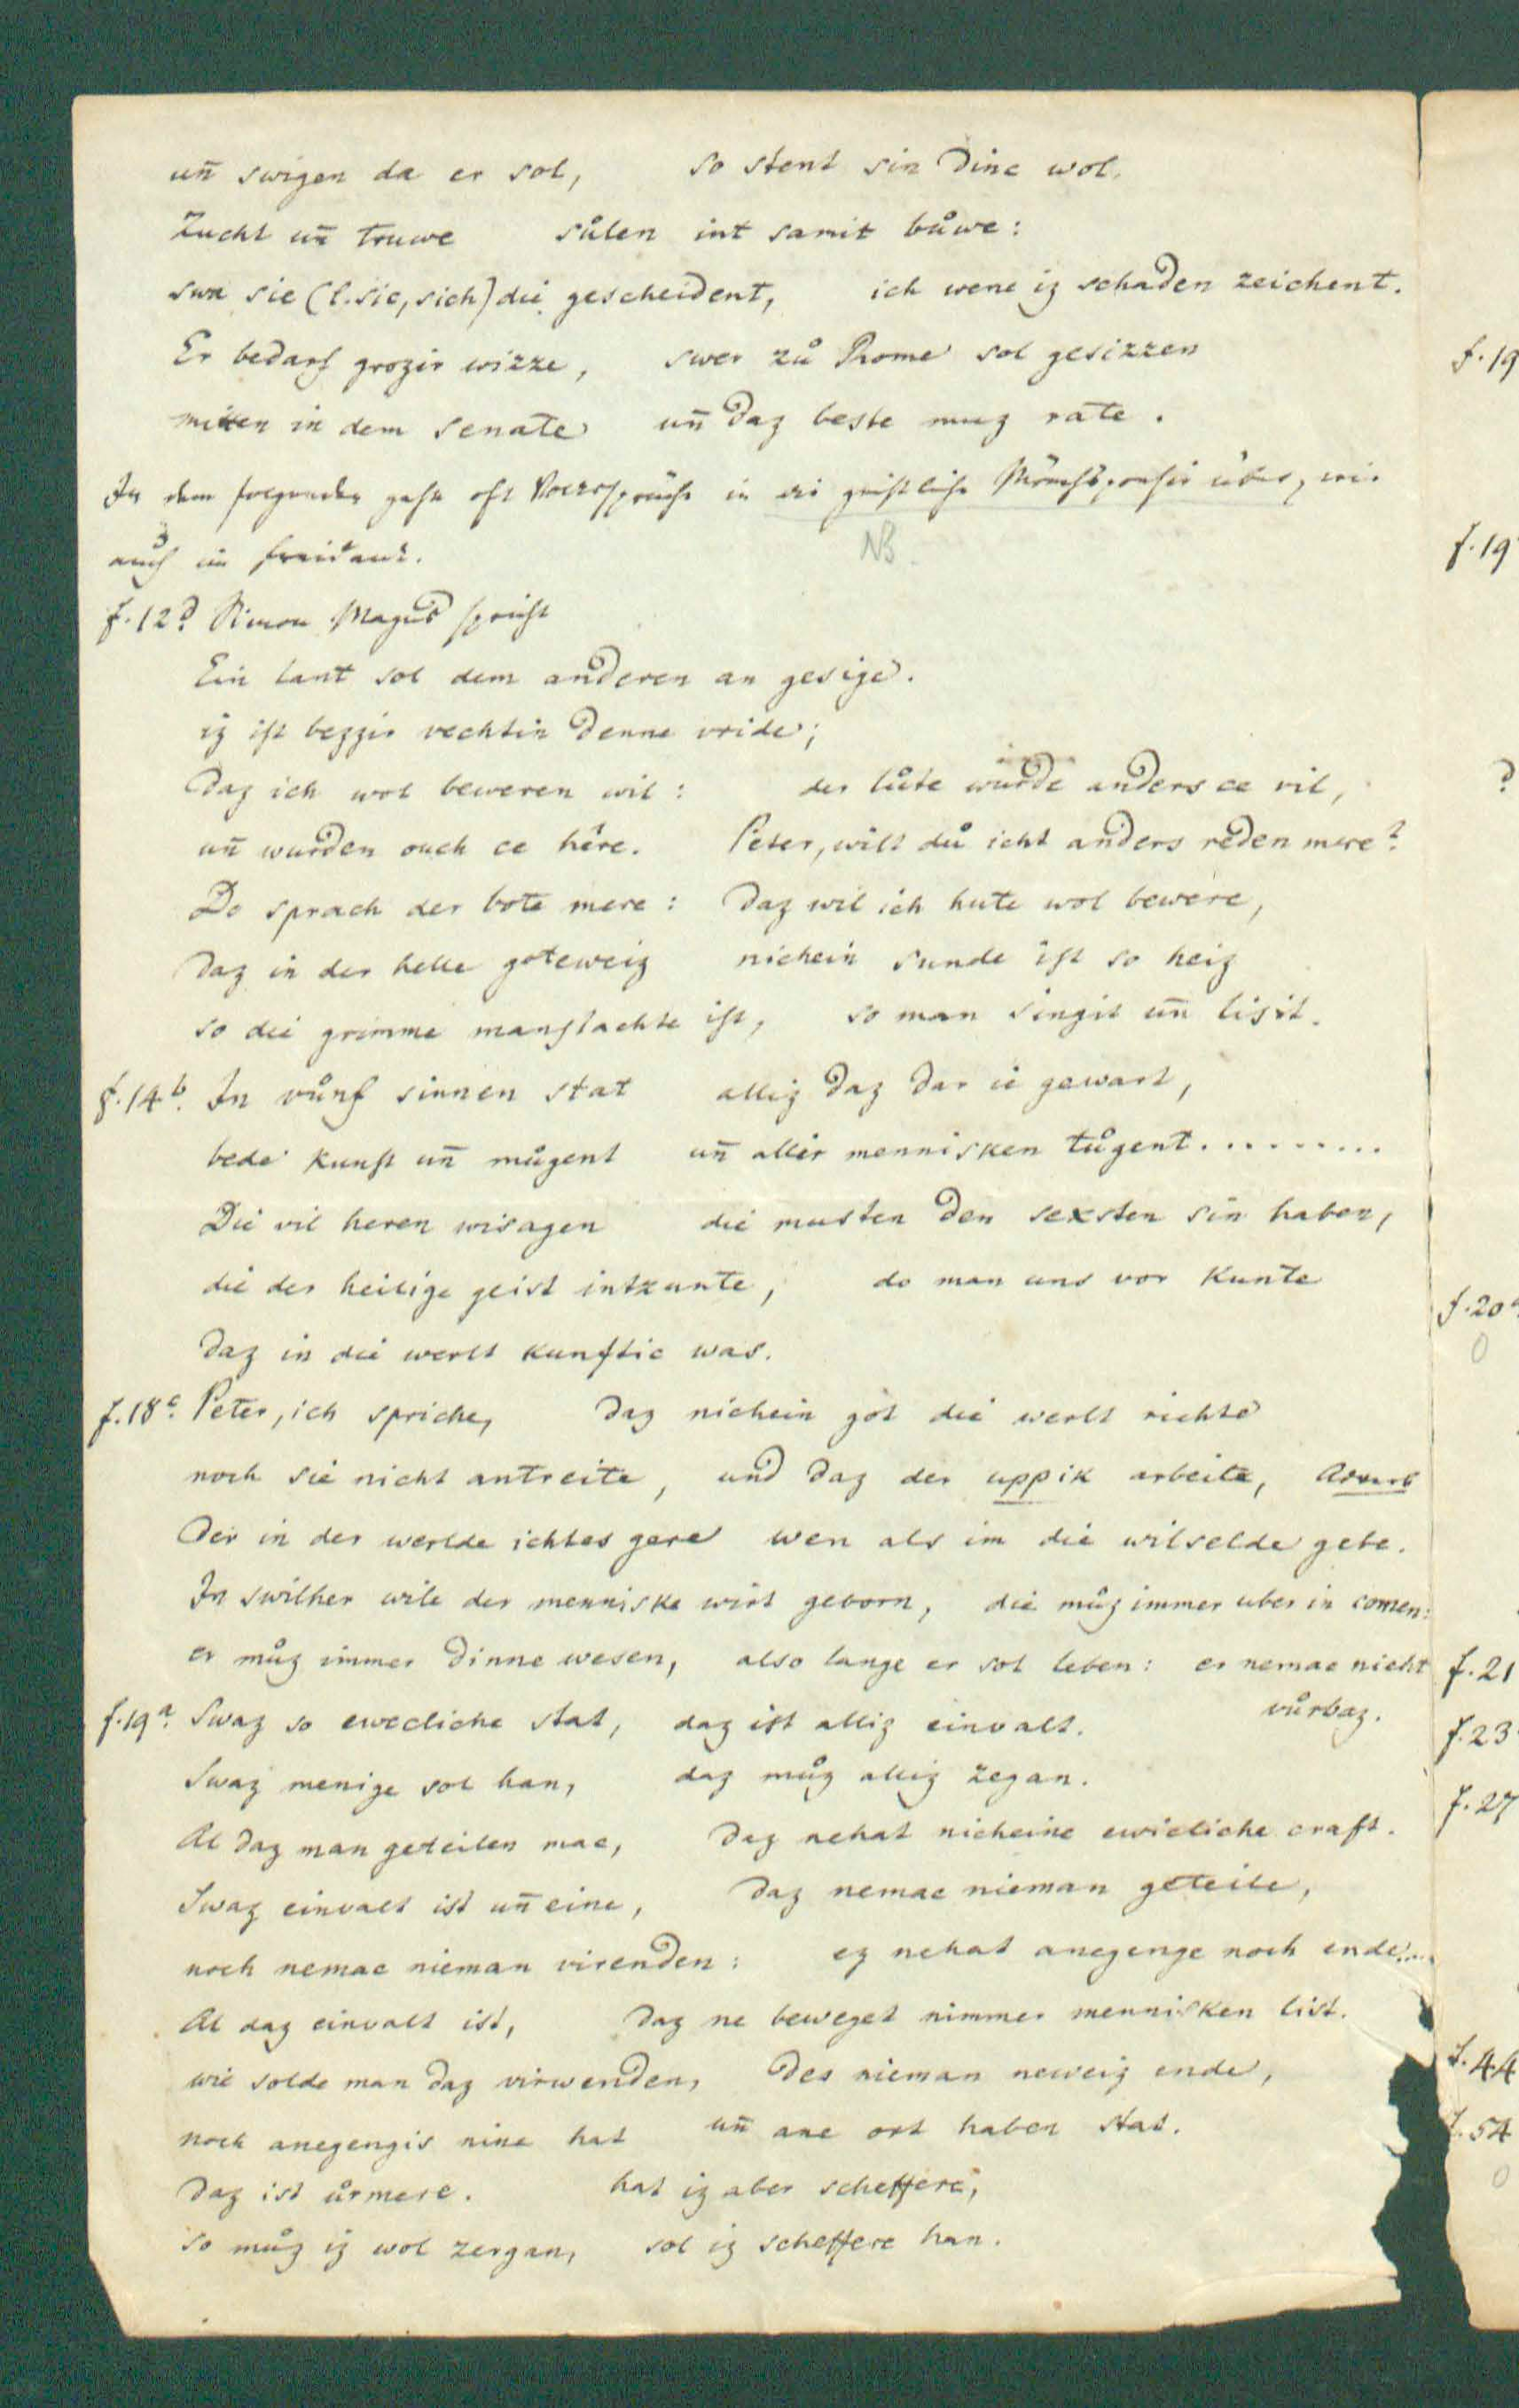 un̄ swigen da er sol, so stent sin dinc wol.
Zucht un̄ truwe sůlen int samit bůwe:
swa sie (l. sie, sich) die gescheident, ich wene iz schaden zeichent.
Er bedarf grozir wizze, swer zů Rome sol gesizzen
mitten in dem senate un̄ daz beste muz rate.
In dem folgenden gehn oft Volkssprüche in die geistliche Mönchspoesie über, wie
auch im freidank.
NB
f. 12d. Simon Magus spricht
Ein lant sol dem anderen an gesige.
iz ist bezzir vechtin denne vride;
Daz ich wol beweren wil: der lůte wurde anders ce vil,
un̄ wurden ouch ce hêre. Peter, wilt dů icht anders reden mere?
Do sprach der bote mere: Daz wil ich hute wol bewere,
Daz in der helle goteweiz nichein sunde ist so heiz
so die grimme manslachte ist, so man singit un̄ lisit.
f. 14b. In vůnf sinnen stat alliz daz dar ie gewart,
bede kunst un̄ můgent un̄ allir mennisken tůgent.........
Die vil heren wisagen die musten den sexsten sin haben,
die der heilige geist intzunte, do man uns vor kunte
Daz in die werlt kunftic was.
f. 18c. Peter, ich spriche, daz nichein got die werlt richte
noch sie nicht antreite, und daz der uppik arbeite, Adverb
Der in der werlde ichtes gere wen als im die wilselde gebe.
In swilher wile der menniske wirt geborn, die můz immer uber in comen:
er můz immer dinne wesen, also lange er sol leben: er nemac nicht
vůrbaz.
f. 19a. Swaz so ewecliche stat, daz ist alliz einvalt.
Swaz menige sol han, daz můz alliz zegan.
Al daz man geteilen mac, Daz nehat nicheine ewicliche craft.
Swaz einvalt ist un̄ eine, Daz nemac nieman geteile,
noch nemac nieman virenden: ez nehat anegenge noch ende....
Al daz einvalt ist, Daz ne beweget nimmer mennisken list.
wie solde man daz virwenden, Des nieman neweiz ende,
noch anegengis nine hat un̄ ane ort haben stat.
Daz ist ůrmere. hat iz aber scheffere,
so můz iz wol zergan, sol iz scheffere han.
f. 19
f. 19
?
f. 20a
0
f. 21
f. 23
f. 27
f. 44
f. 54
0